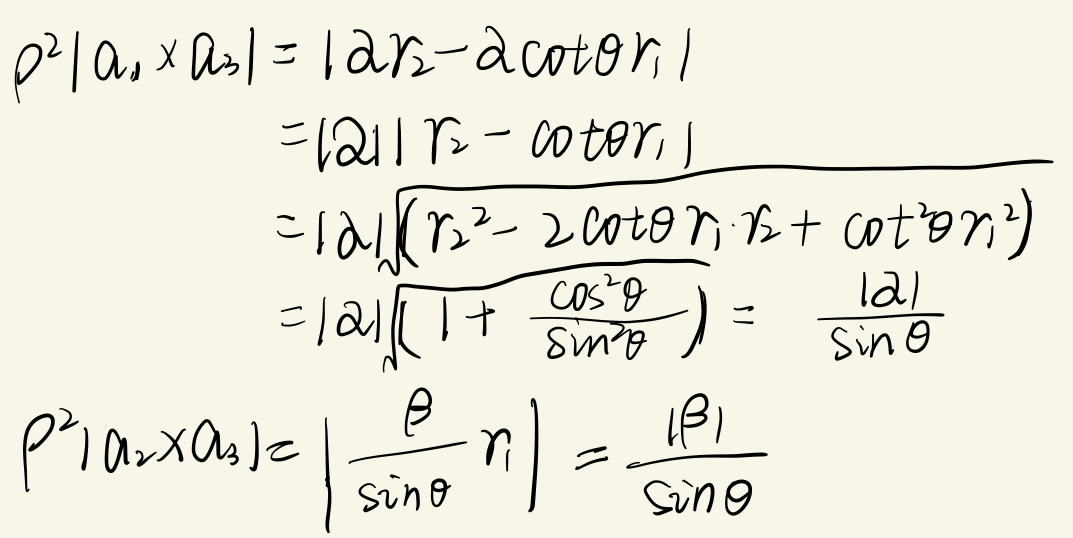 ρ²|a₁ × a₃| = |αr₂ − α cotθ r₁|
= |α| |r₂ − cotθ r₁|
= |α|√(r₂² − 2cotθ r₁·r₂ + cot²θ r₁²)
= |α|√(1 + cos²θ / sin²θ) = |α| / sinθ
ρ²|a₂ × a₃| = |β / sinθ r₁| = |β| / sinθ